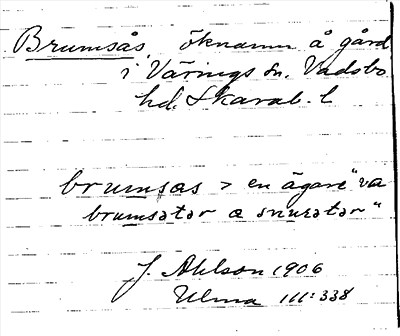 Brumsås, öknamn å gård
i Värings sn. Vadsbo
hd. Skarab. l
brumsas > en ägare "va
brumsatar æ snuratar"
J. Ahlson 1906
Ulma 111:338